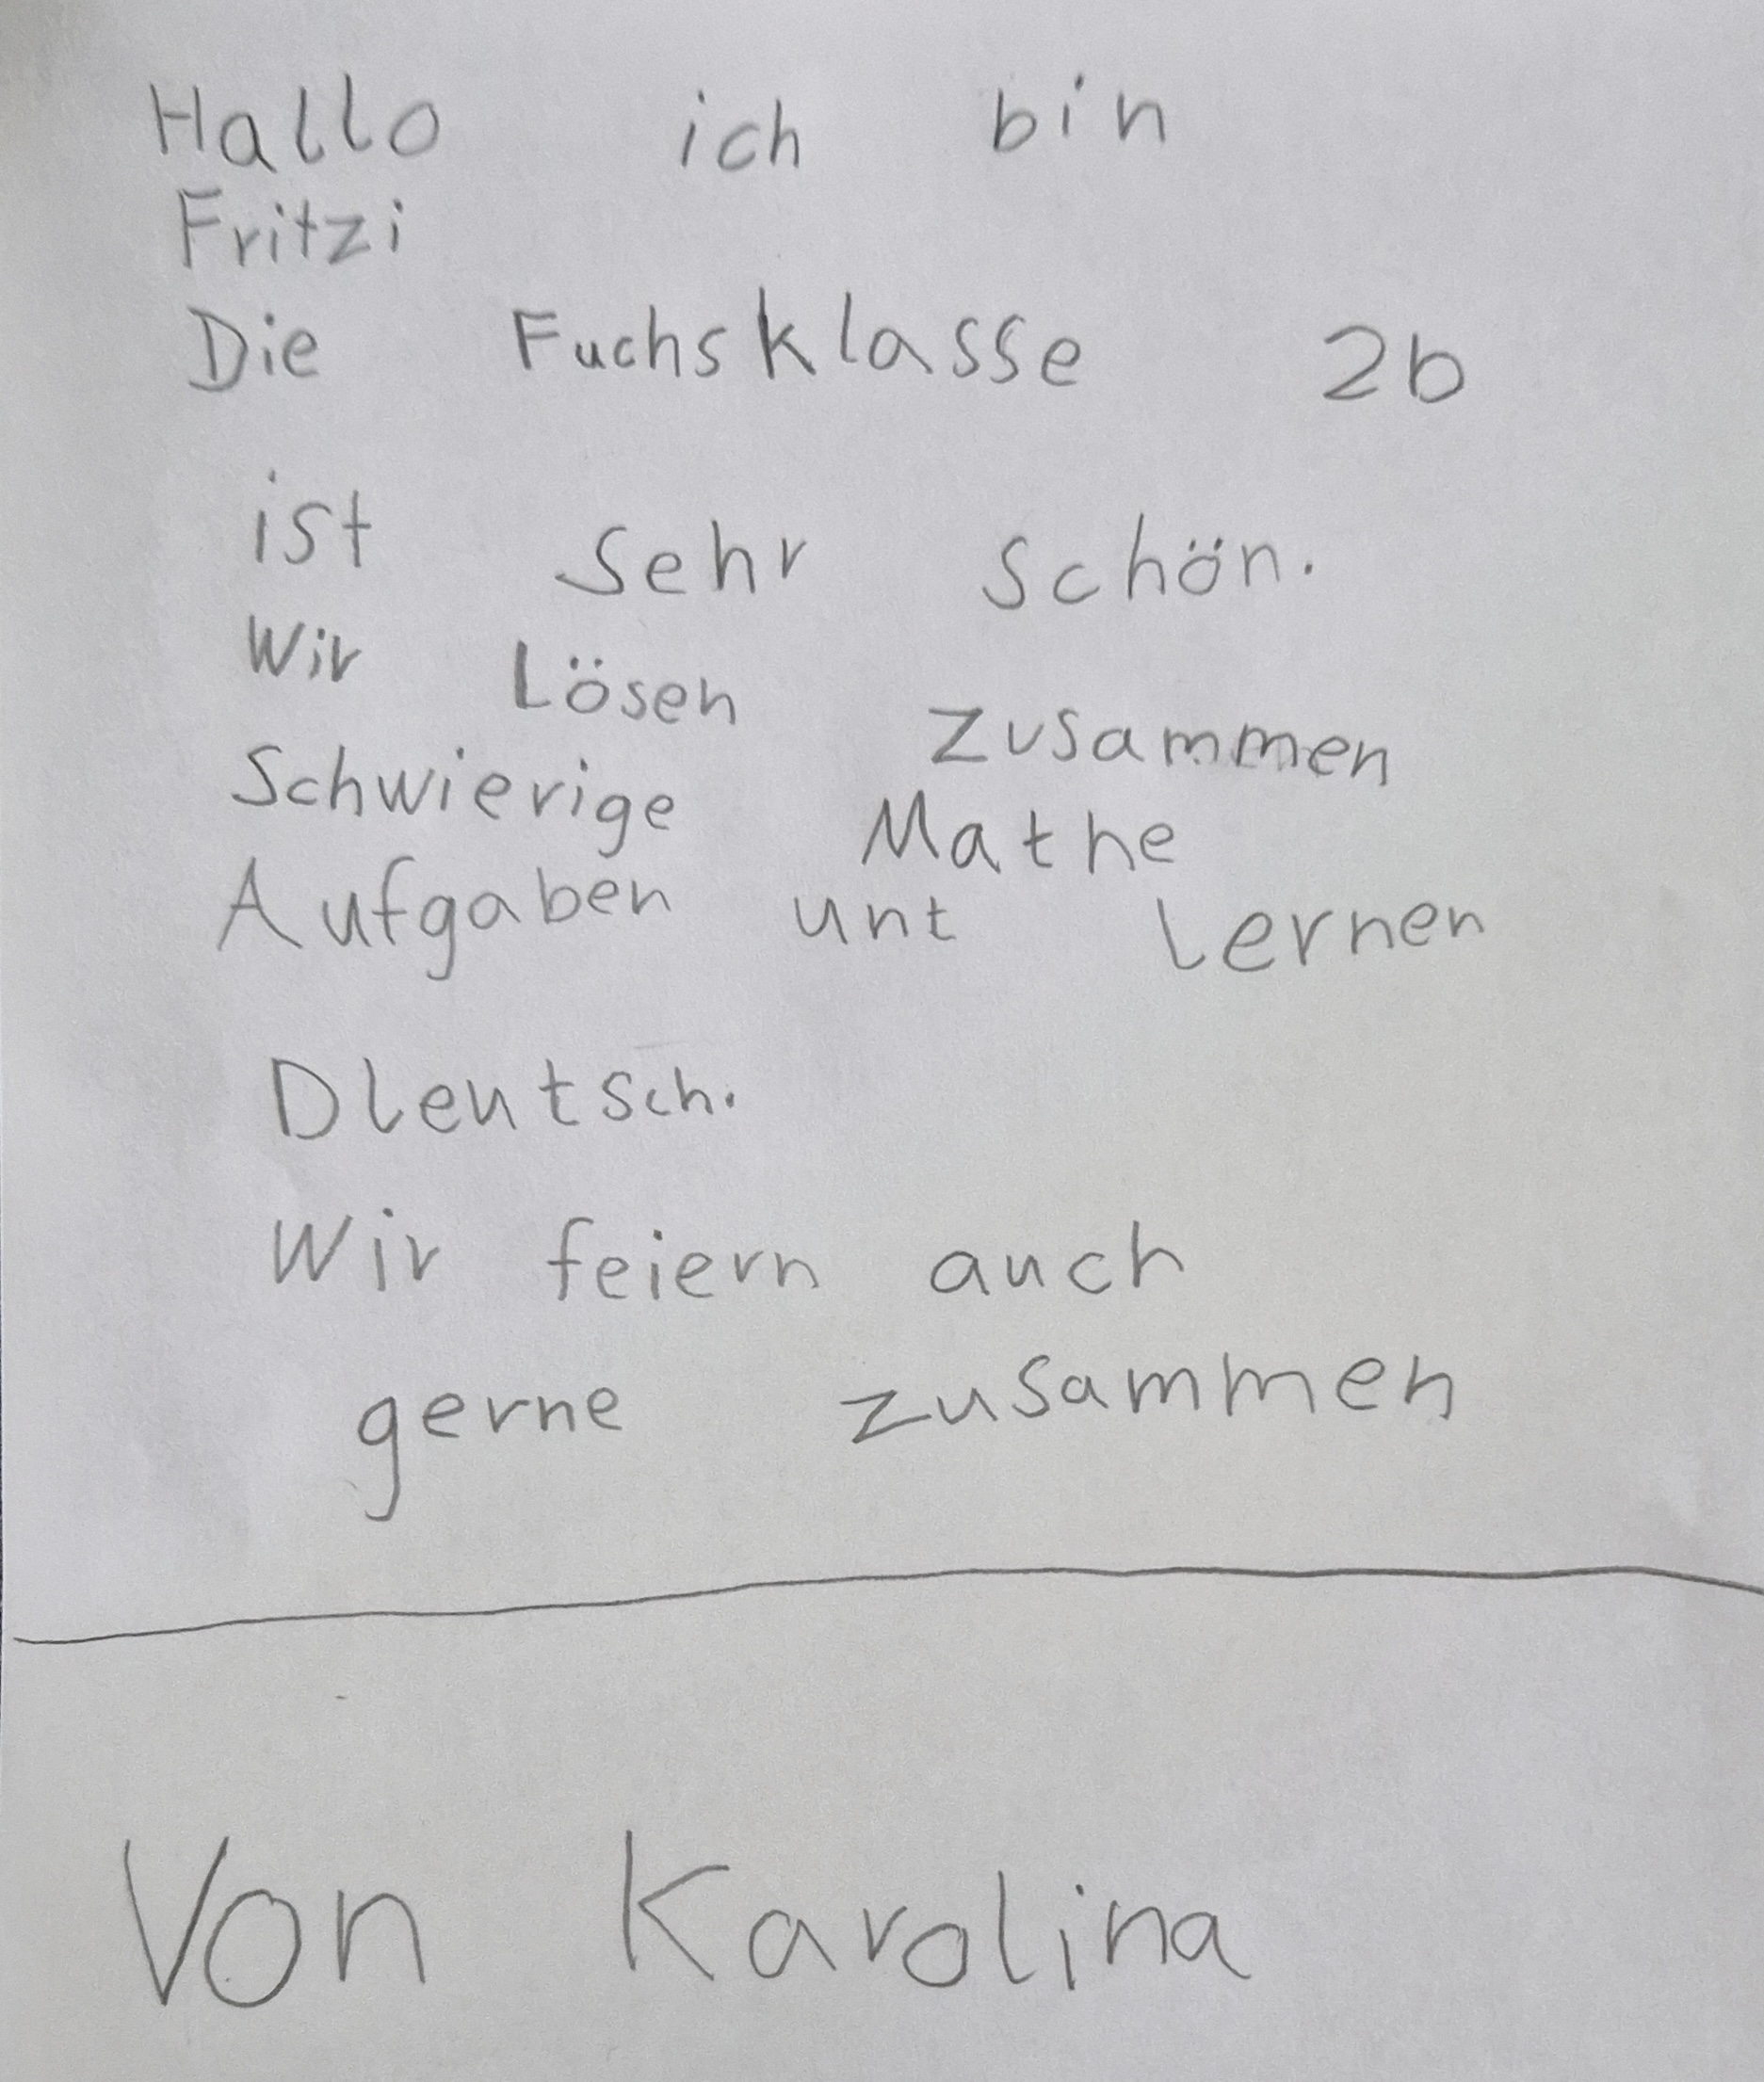 Hallo ich bin
Fritzi
Die Fuchsklasse 2b
ist sehr schön.
Wir Lösen zusammen
Schwierige Mathe
Aufgaben unt lernen
Dleutsch.
Wir feiern auch
gerne zusammen
Von Karolina